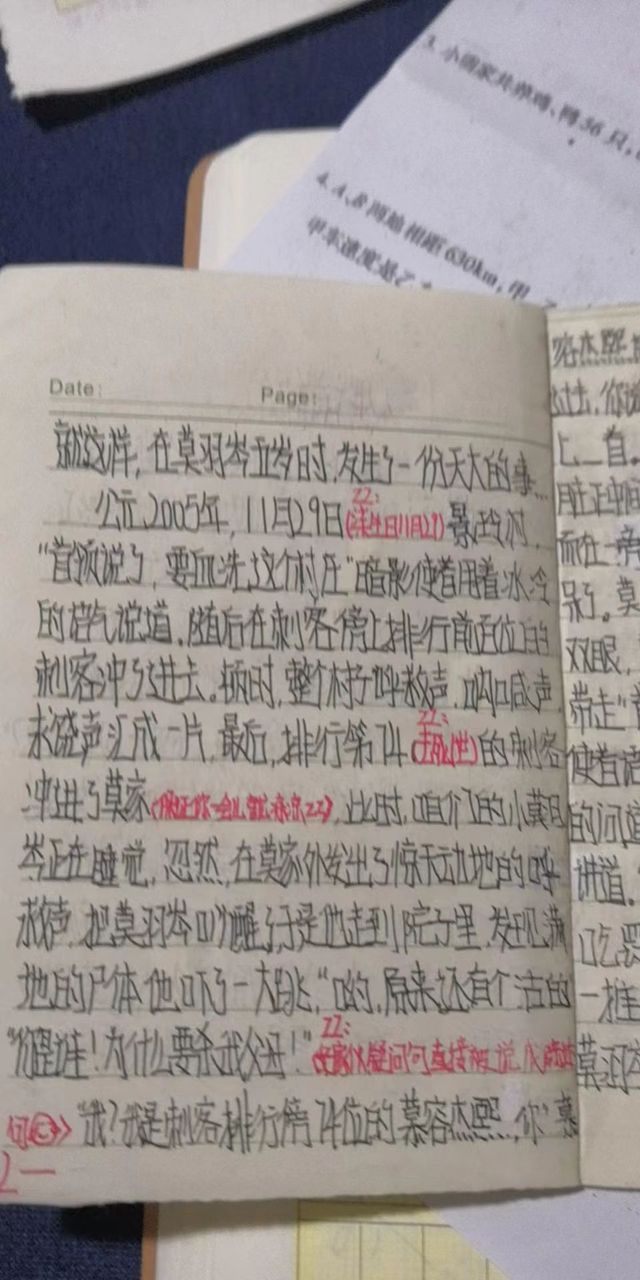 3.小国家共养鸡、鸭56只,
4.A、B两地相距630km,甲、乙
甲车速度是乙
Date: Page:
就这样,在莫羽岑五岁时,发生了一份天大的事...
公元2005年,11月29日(ZZ:生日11月29)景 村,
"首领说了,要血洗这个村庄"暗影使者用着冰冷
的语气说道.随后在刺客榜上排行前 位的
刺客冲了进去.顿时,整个村子呼救声,呐喊声,
求饶声汇成一片,最后,排行第74(ZZ:)的刺客
冲进了莫家(保证你一会儿 ZZ),此时,咱们的小莫羽
岑正在睡觉,忽然,在莫家外发出了惊天动地的呼
救声,把莫羽岑叫醒了于是他走到院子里,发现满
地的尸体他吓了一大跳,"哟,原来还有个活的"
"你是谁!为什么要杀我父母!"ZZ:疑问句直接被说成
句 "我?我是刺客排行榜74位的慕容杰熙,你"慕
容杰熙
过去,你
上 自。
脏正中间
而在一旁
呆了。莫
双眼,
带走"
使者语
的问道
讲道。
吃
一推
莫羽岑